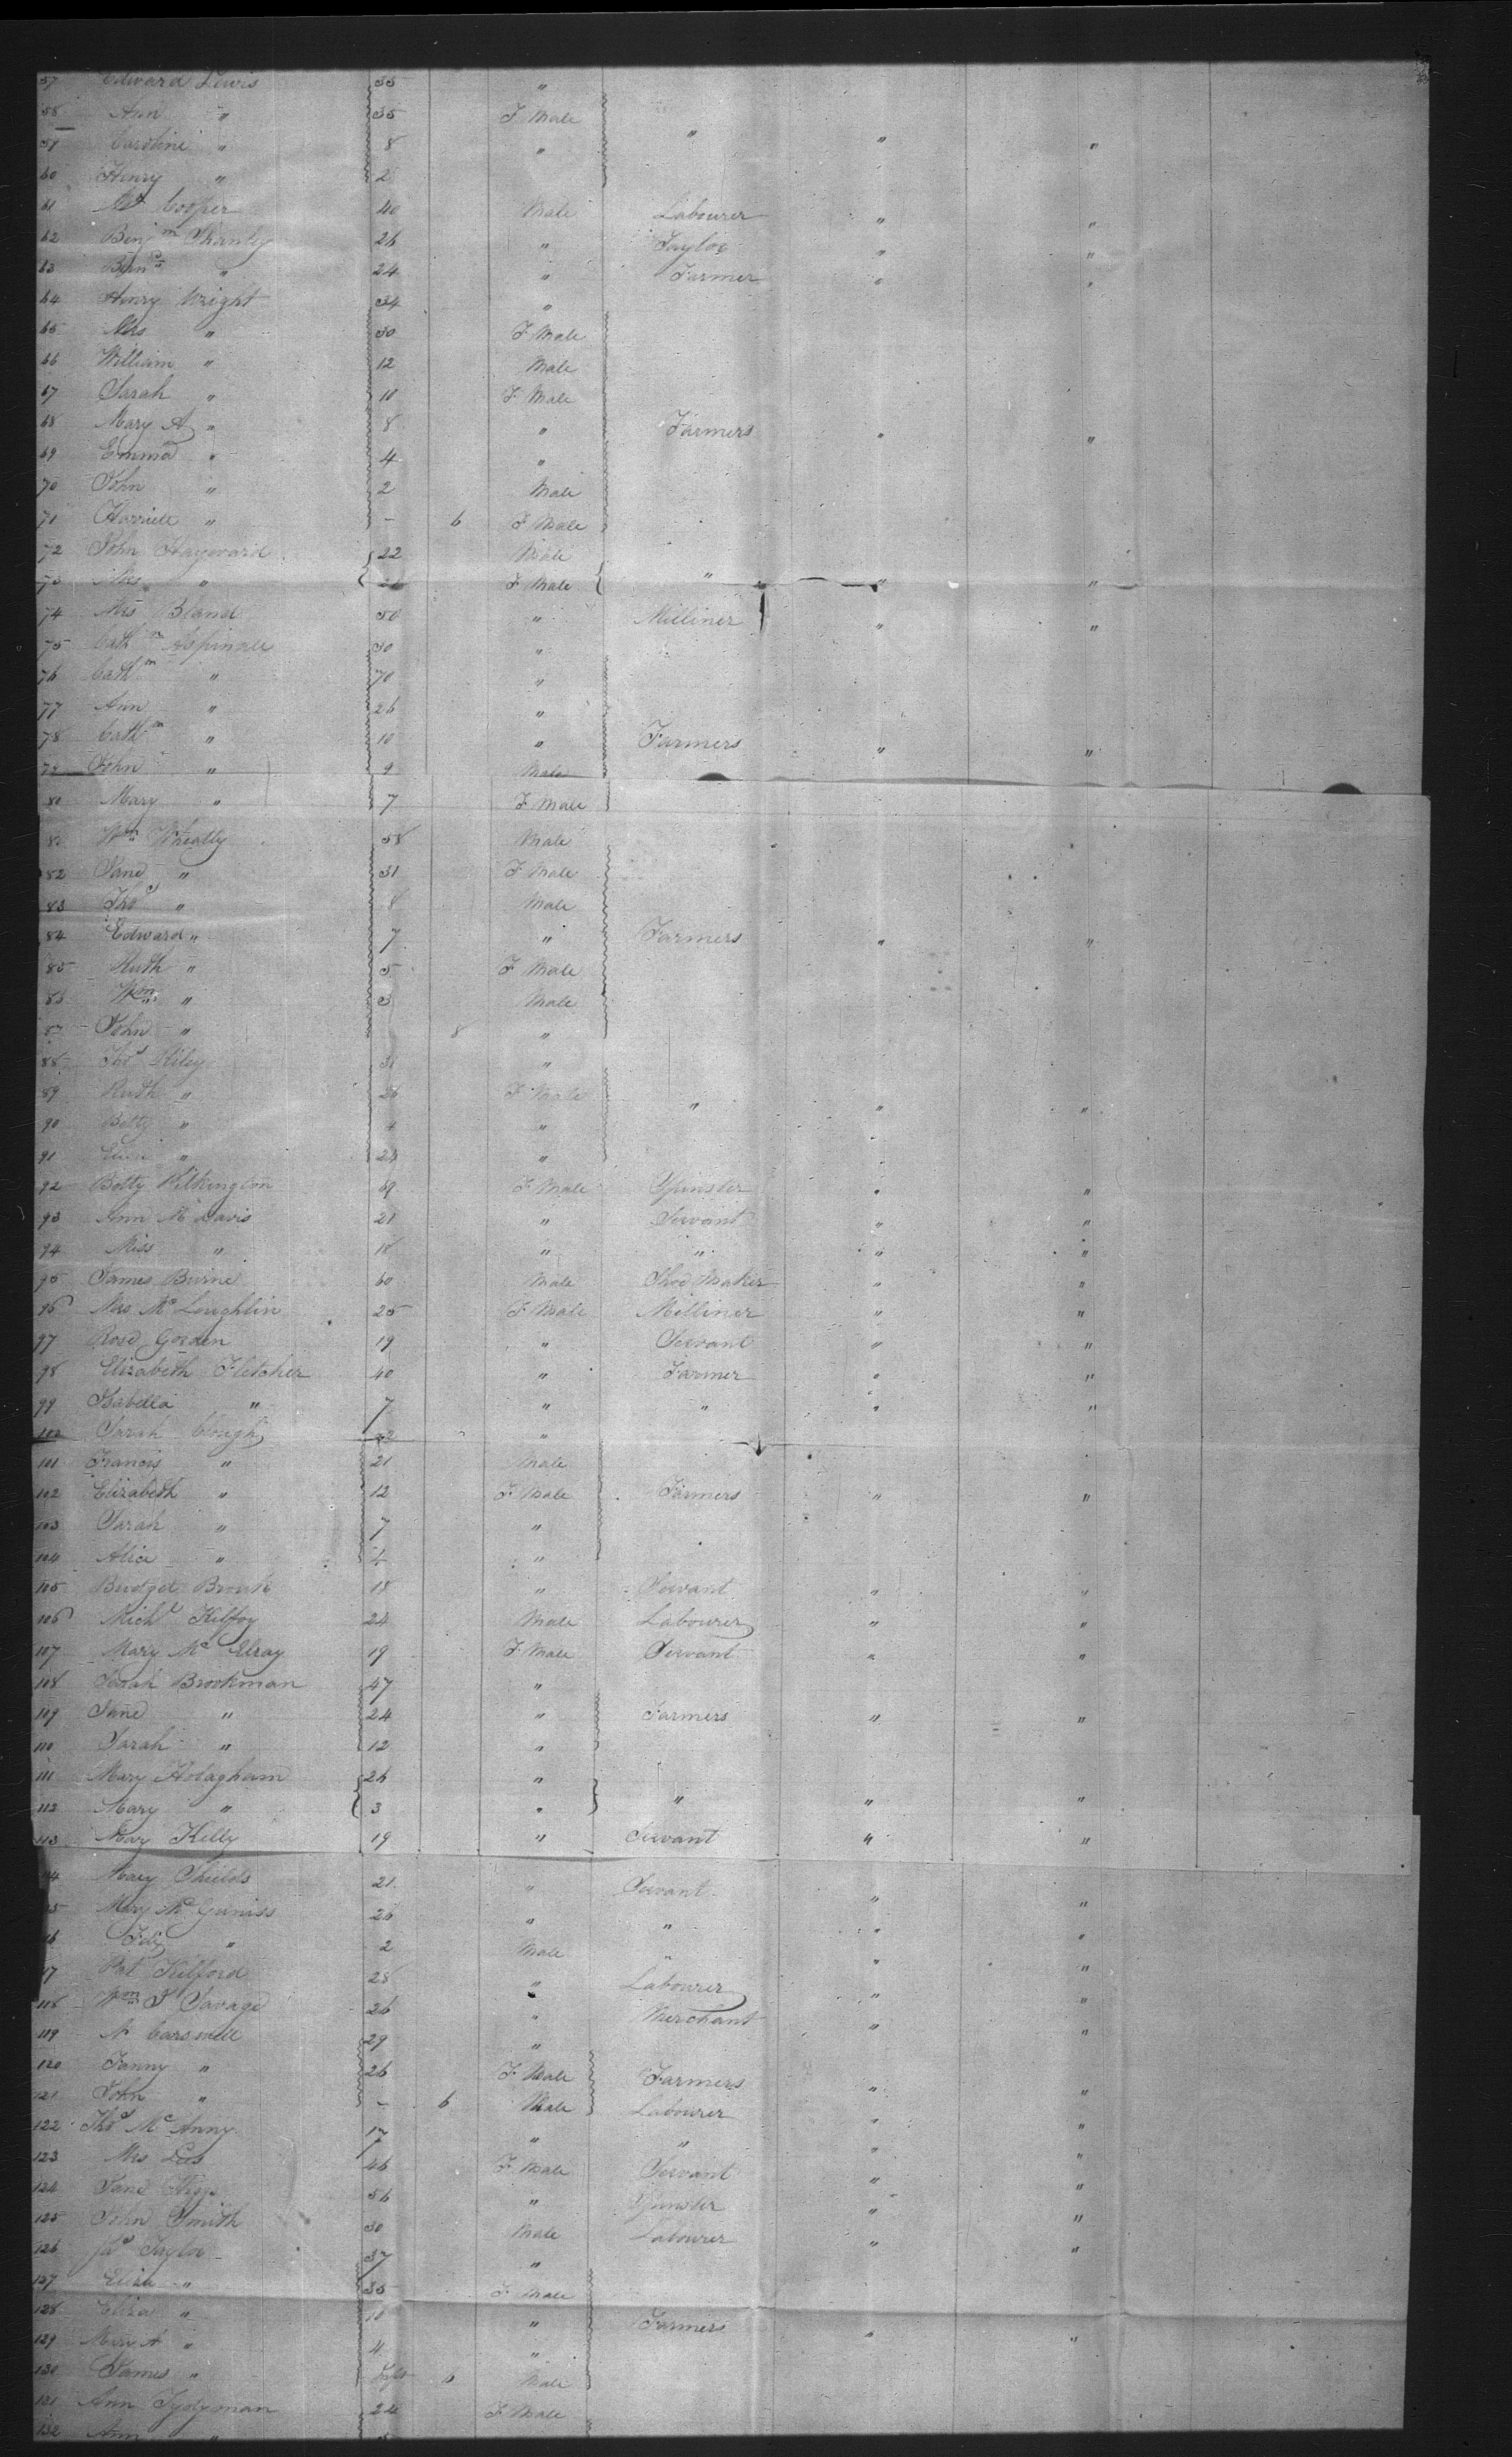 57 Edward Lewis 35 "
58 Ann " 35 F Male " " "
59 Caroline " 8 "
60 Henry " 2
61 Cooper 40 Male Labourer " "
62 Benjm 26 " Taylor " "
63 " 24 " Farmer " "
64 Henry Wright 34 "
65 Mrs " 30 F Male
66 William " 12 Male
67 Sarah " 10 F Male
68 Mary A " 8 " Farmers " "
69 Emma " 4 "
70 John " 2 Male
71 Harriett " - 6 F Male
72 John Hayward 22 Male
73 Mrs " F Male " " "
74 Mrs Bland 50 " Milliner " "
75 Cathn Aspinall 30 "
76 Cathn " 70 "
77 Ann " 26 "
78 Cathn " 10 " Farmers " "
79 John " 9 Male
80 Mary " 7 F Male
81 Wm Wheatly 58 Male
82 Jane " 31 F Male
83 Thos " 8 Male
84 Edward " 7 " Farmers " "
85 Ruth " 5 F Male
86 Wm " 3 Male
87 John " 8 "
88 Thos Riley 31 "
89 Ruth " 26 F Male " " "
90 Betty " 4 "
91 " 24 "
92 Betty Pilkington 69 F Male Spinster " "
93 Ann Mc Davis 21 " Servant " "
94 Miss " 18 " " " "
95 James Burne 60 Male Shoe Maker " "
96 Mrs Mc Loughlin 25 F Male Milliner " "
97 Rose Gorden 19 " Servant " "
98 Elizabeth Fletcher 40 " Farmer " "
99 Isabella " 7 " " " "
100 Sarah Clough "
101 Francis " 21 Male
102 Elizabeth " 12 F Male Farmers " "
103 Sarah " 7 "
104 Alice " 4 "
105 Bridget 18 " Servant " "
106 Michl Kilfoy 24 Male Labourer " "
107 Mary Mc Elray 19 F Male Servant " "
108 Sarah Brookman 47 "
109 Jane " 24 " Farmers " "
110 Sarah " 12 "
111 Mary 26 "
112 Mary " 3 " " " "
113 Mary Kelly 19 " Servant " "
114 Mary Shields 21 " Servant " "
115 Mary Mc Guniss 26 " " " "
116 " 2 Male " " "
117 Pat Kilford 28 " Labourer " "
118 Wm J Savage 26 " Merchant " "
119 Carswell 29 "
120 Fanny " 26 F Male Farmers " "
121 John " - 6 Male Labourer
122 Thos Mc Anny 17 " " " "
123 Mrs 46 F Male Servant " "
124 Jane 56 " Spinster " "
125 John Smith 30 Male Labourer " "
126 Jas Taylor 37 "
127 Eliza " 35 F Male
128 Eliza " 10 " Farmers " "
129 Mary A " 4 "
130 James " 6 Male
131 Ann Tydyman 24 F Male
132 Ann "